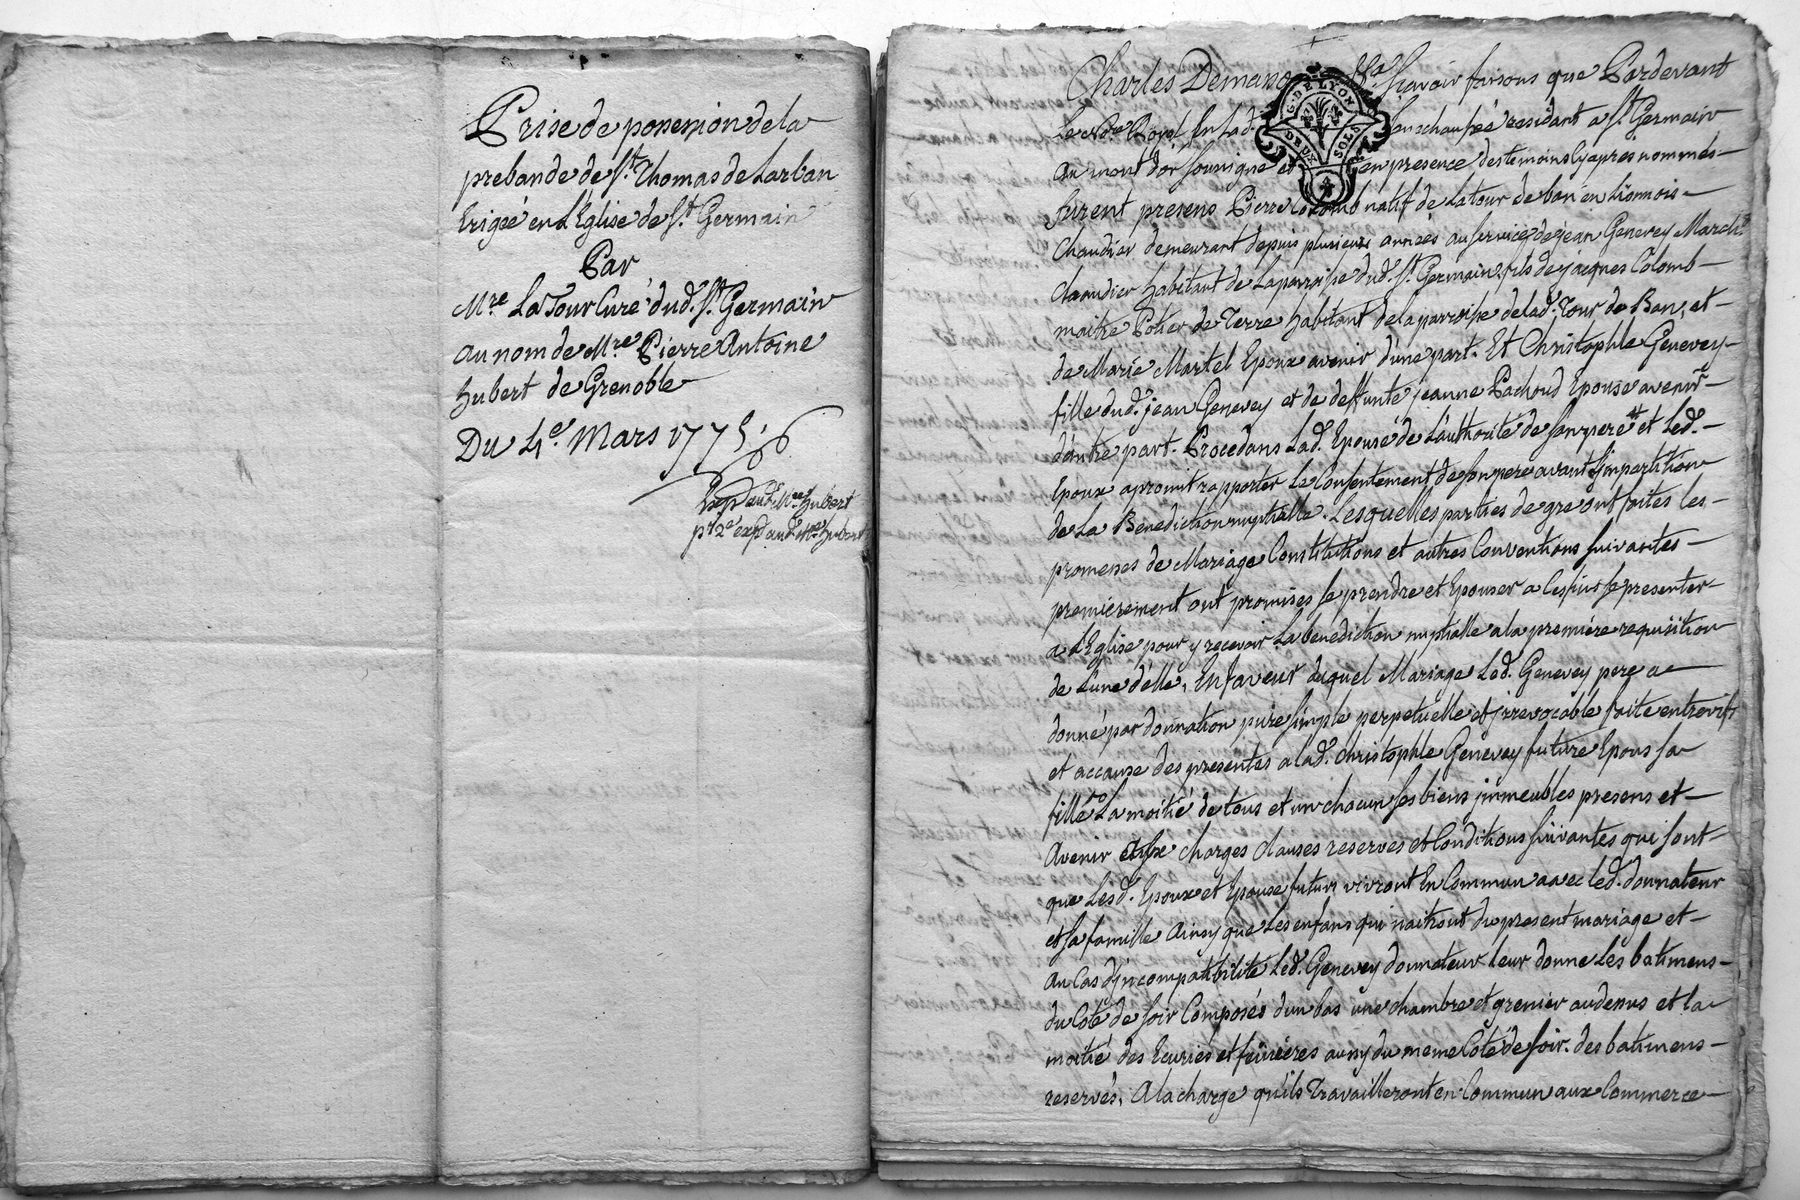 Prise de possession de la
prebande de St. Thomas de Larban
Erigée en L'Eglise de St. Germain
Par
Mre LaTour Curé dud. St. Germain
au nom de Mre Pierre Antoine
hubert de Grenoble
Du 4e. Mars 1775
Exp aud. Mre hubert
pr 2e exp aud. Mre hubert
Charles Demano scavoir faisons que Pardevant
Le Nre Royal En lad. senechaussée residant a St. Germain
au mont d'or soussigné et en presence des temoins cy apres nommés
furent presens Pierre Colomb natif de La tour de ban en Lionnois
Chaudier demeurant depuis plusieurs années au service de jean Genevey March.
chaudier habitant de La parroisse dud. St. Germain, fils de jacques Colomb
maitre Potier de Terre habitant de la parroisse de lad. Tour de Ban, et
de Marie Martel Epoux avenir d'une part. Et Christophle Genevey
fille dud. jean Genevey et de deffunte jeanne Pachoud Epouse avenir
d'autre part. Procedans Lad. Epouse de L'authorité de son pere et Led.
Epoux a promit rapporter Le Consentement de son pere avant l'impartition
de La Benediction nuptialle. Lesquelles parties de gre ont faites les
promesses de Mariage Constitutions et autres Conventions suivantes
premierement ont promises se prendre et Epouser a Ces fins se presenter
a L'Eglise pour y recevoir La benediction nuptialle a la premiere requisition
de L'une d'elle, En faveur duquel Mariage Led. Genevey pere a
donné par donnation pure simple perpetuelle et irrevocable faite entrevifs
et accause des presentes a lad. Christophle Genevey future Epouse sa
fille La moitié de tous et un chacun ses biens immeubles presens et
avenir charges clauses reserves et Conditions suivantes qui sont
que Lesd. Epoux et Epouse futurs vivront En Commun avec Led. donnateur
et sa famille Ainsy que Les enfans qui naitront du present mariage et
au Cas d'incompatibilité Led. Genevey donnateur leur donne Les batimens
du Coté de soir Composés d'un bas une chambre et grenier audessus et la
moitié des Ecuries et feinieres aussy du meme Coté de soir. des batimens
reservés, A la charge qu'ils Travailleront en Commun aux Commerce
G. DE LYON
DEUX SOLS